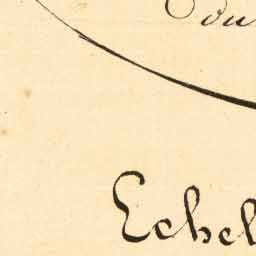 du
Echel